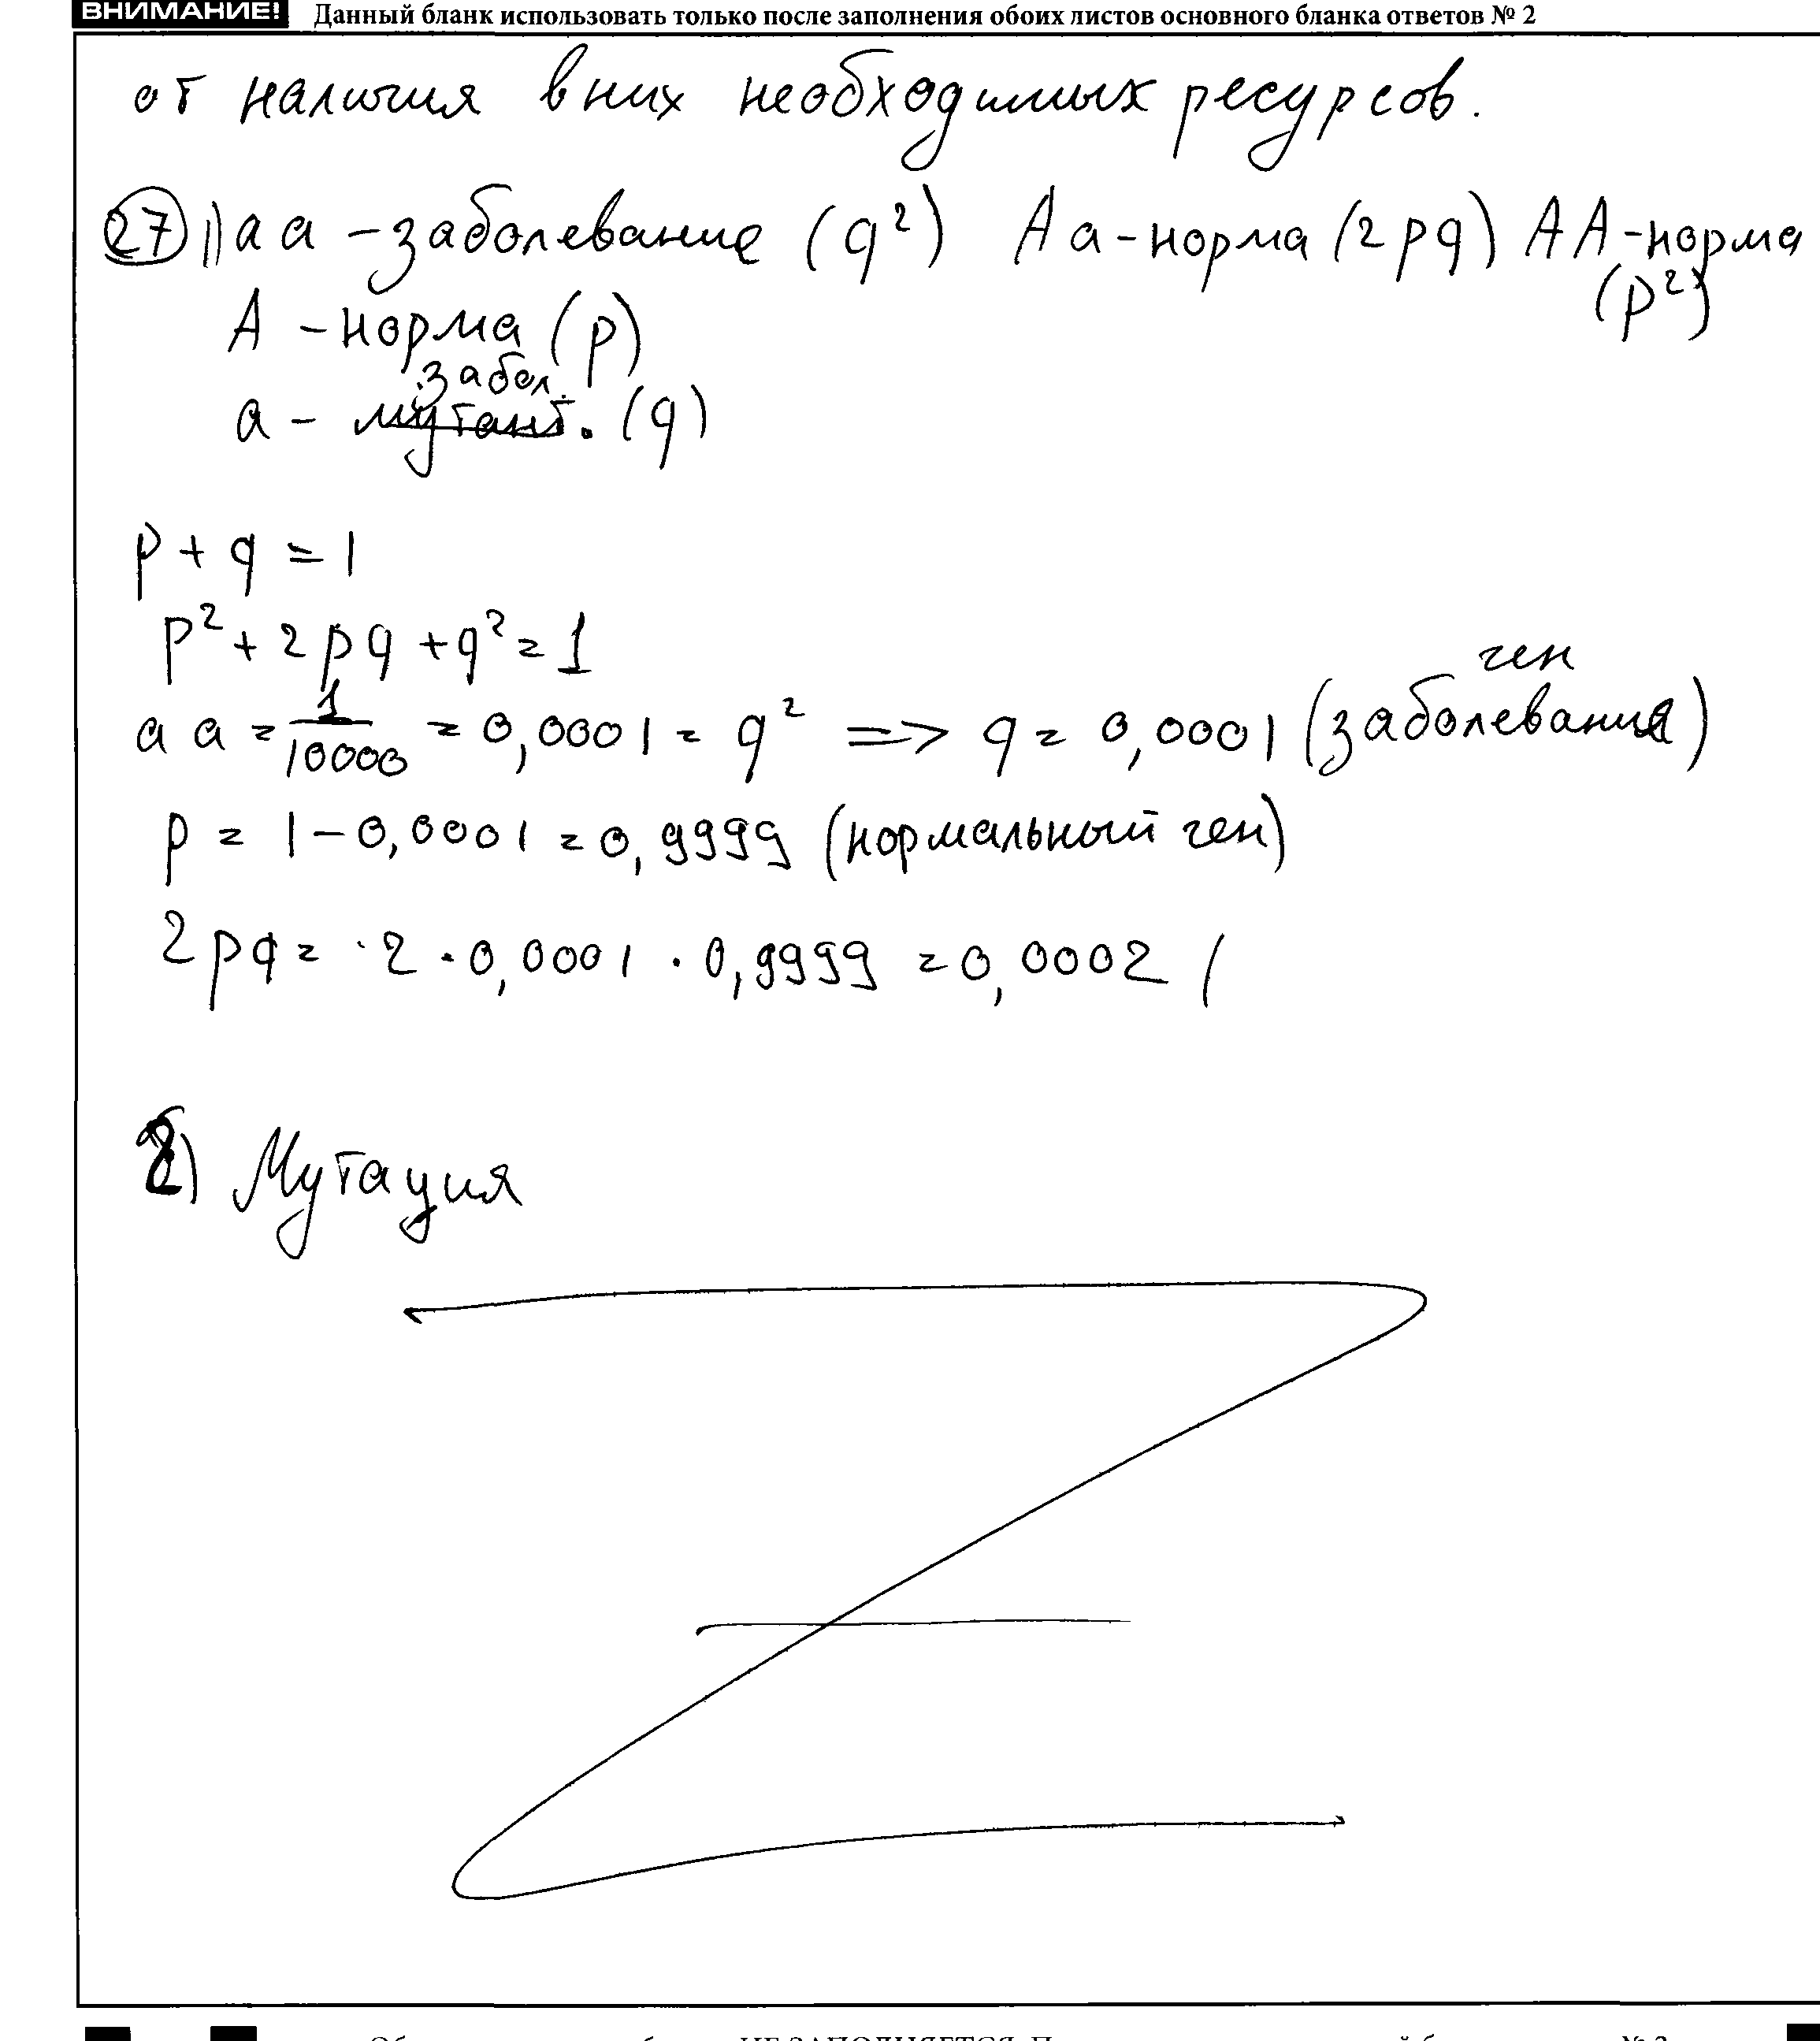 ВНИМАНИЕ! Данный бланк использовать только после заполнения обоих листов основного бланка ответов № 2
от наличия в них необходимых ресурсов.
27 1) аа - заболевание (q²) Аа - норма (2pq) АА - норма
(p²)
А - норма (p)
забол.
а - мутант. (q)
p + q = 1
p² + 2pq + q² = 1
ген
аа = 1/10000 = 0,0001 = q² => q = 0,0001 (заболевания)
p = 1 - 0,0001 = 0,9999 (нормальный ген)
2pq = 2 · 0,0001 · 0,9999 = 0,0002 (
2) Мутация